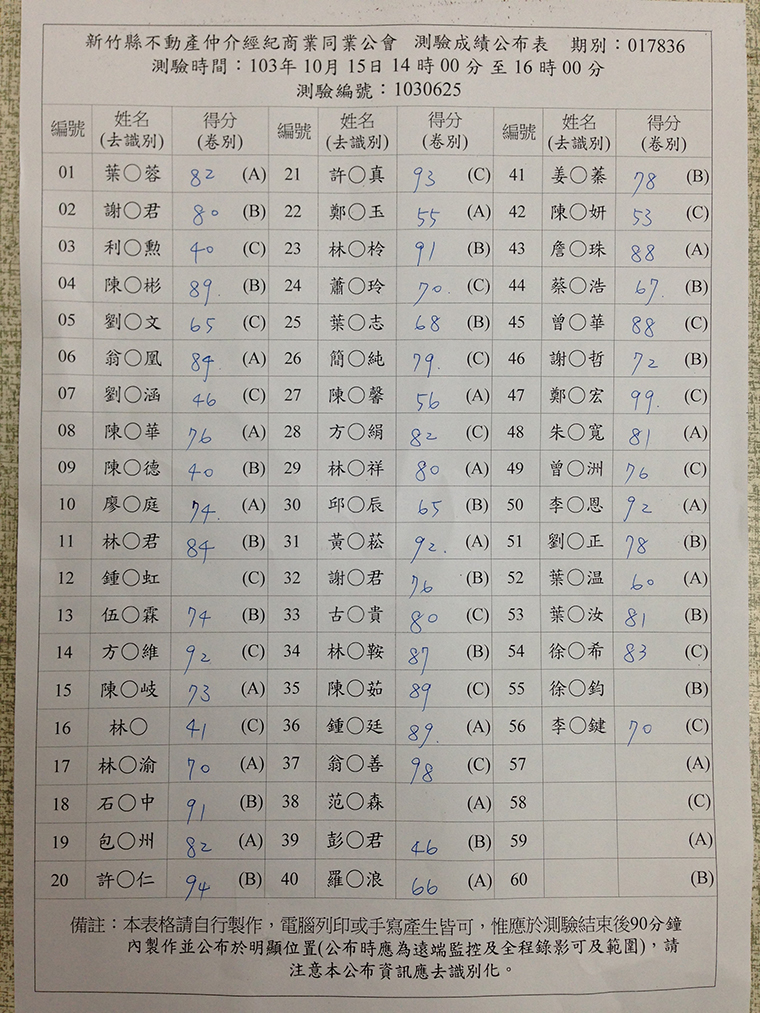 新竹縣不動產仲介經紀商業同業公會 測驗成績公布表 期別：017836
測驗時間：103年 10月 15日 14 時 00 分 至 16 時 00 分
測驗編號：1030625
編號 姓名(去識別) 得分(卷別) 編號 姓名(去識別) 得分(卷別) 編號 姓名(去識別) 得分(卷別)
01 葉○蓉 82 (A) 21 許○真 93 (C) 41 姜○蓁 78 (B)
02 謝○君 80 (B) 22 鄭○玉 55 (A) 42 陳○妍 53 (C)
03 利○勲 40 (C) 23 林○柃 91 (B) 43 詹○珠 88 (A)
04 陳○彬 89. (B) 24 蕭○玲 70. (C) 44 蔡○浩 67. (B)
05 劉○文 65 (C) 25 葉○志 68 (B) 45 曾○華 88 (C)
06 翁○凰 84 (A) 26 簡○純 79. (C) 46 謝○哲 72 (B)
07 劉○涵 46 (C) 27 陳○馨 56 (A) 47 鄭○宏 99. (C)
08 陳○華 76 (A) 28 方○絹 82 (C) 48 朱○寬 81 (A)
09 陳○德 40 (B) 29 林○祥 80 (A) 49 曾○洲 76 (C)
10 廖○庭 74. (A) 30 邱○辰 65 (B) 50 李○恩 92 (A)
11 林○君 84 (B) 31 黃○菘 92. (A) 51 劉○正 78 (B)
12 鍾○虹 (C) 32 謝○君 76 (B) 52 葉○温 60 (A)
13 伍○霖 74 (B) 33 古○貴 80 (C) 53 葉○汝 81 (B)
14 方○維 92 (C) 34 林○鞍 87 (B) 54 徐○希 83 (C)
15 陳○岐 73 (A) 35 陳○茹 89 (C) 55 徐○鈞 (B)
16 林○ 41 (C) 36 鍾○廷 89. (A) 56 李○鍵 70 (C)
17 林○渝 70 (A) 37 翁○善 98 (C) 57 (A)
18 石○中 91 (B) 38 范○森 (A) 58 (C)
19 包○州 82 (A) 39 彭○君 46 (B) 59 (A)
20 許○仁 94 (B) 40 羅○浪 66 (A) 60 (B)
備註：本表格請自行製作，電腦列印或手寫產生皆可，惟應於測驗結束後90分鐘
內製作並公布於明顯位置(公布時應為遠端監控及全程錄影可及範圍)，請
注意本公布資訊應去識別化。